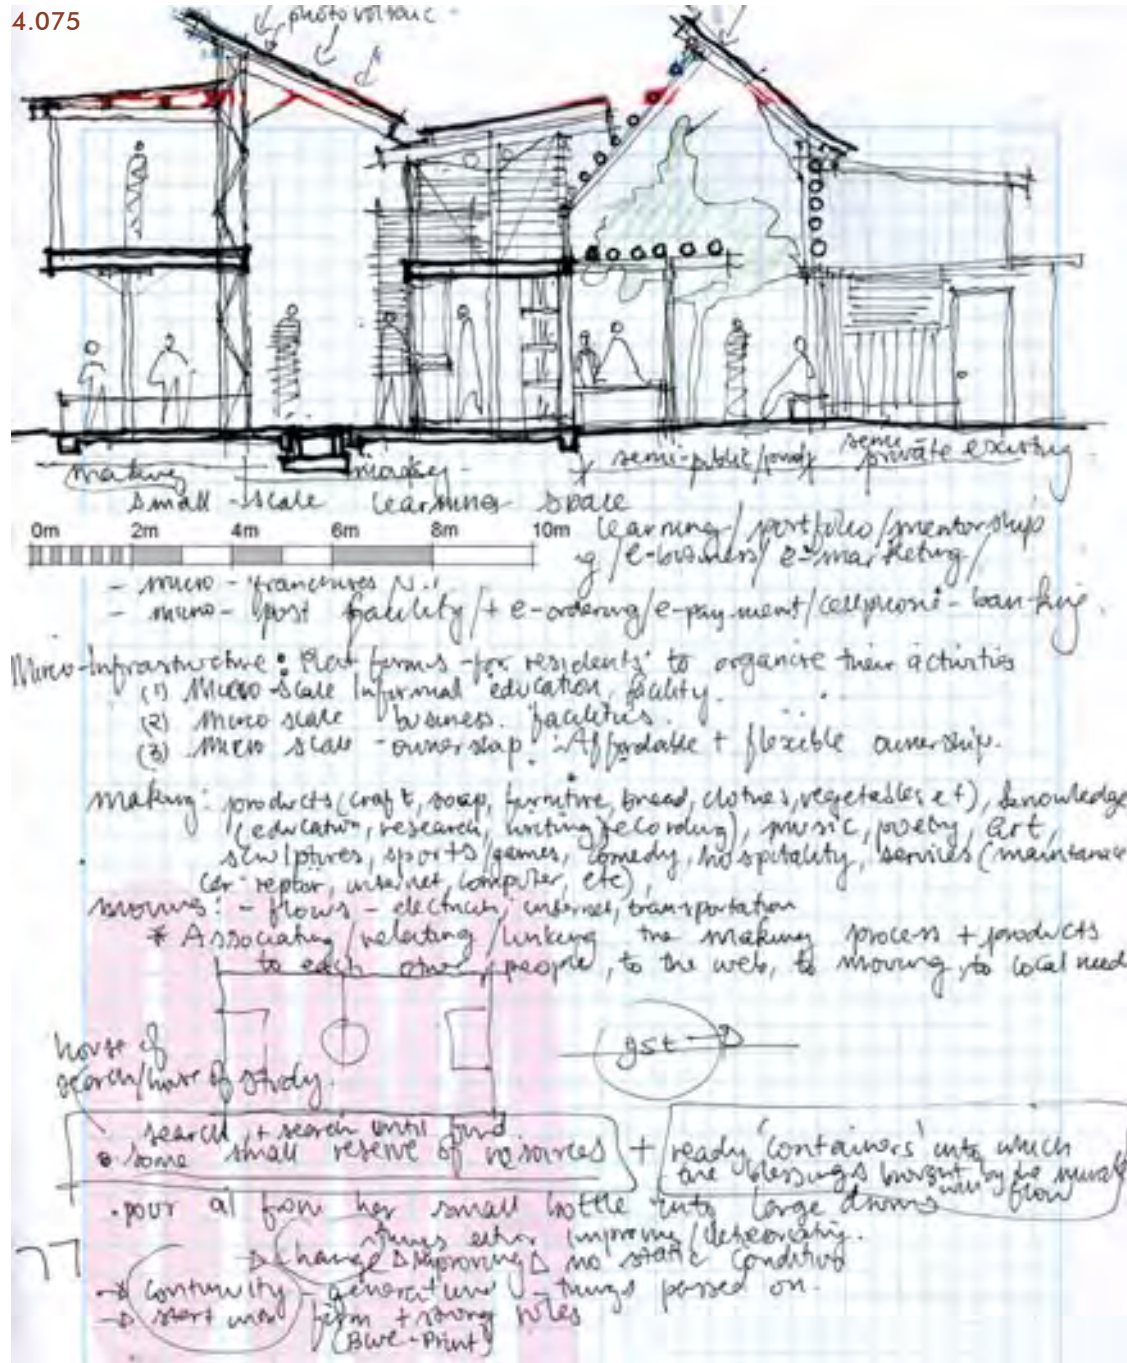 4.075
photovoltaic -
making
market -
semi-public/
semi private existing
small-scale learning space
0m 2m 4m 6m 8m 10m
learning/portfolio/mentorship
eg/e-business/e-marketing/
- micro-franchises
- micro-post facility/+ e-ordering/e-payment/cellphone-banking.
Micro-Infrastructure: Platforms for residents to organise their activities
(1) Micro-scale Informal education facility.
(2) Micro scale business facilities.
(3) Micro scale-ownership: Affordable + flexible ownership.
making: products (craft, soap, furniture, bread, clothes, vegetables et), knowledge
(education, research, writing, recording), music, poetry, art,
sculptures, sports/games, comedy, hospitality, services (maintanace
car-repair, internet, computer, etc),
moving: - flows - internet, transportation
* Associating/relating/linking the making process + products
to each other, people, to the web, to moving, to local need
house of
search/house of study.
gst
search, + search until find
• some small reserve of resources + ready 'containers' into which
the blessings by the will flow
• pour oil from her small bottle into large drums
things either improving/deteriorating.
→ Change improving no static condition
→ Continuity - things passed on.
→ start firm + strong rules
(Blue-Print)
77